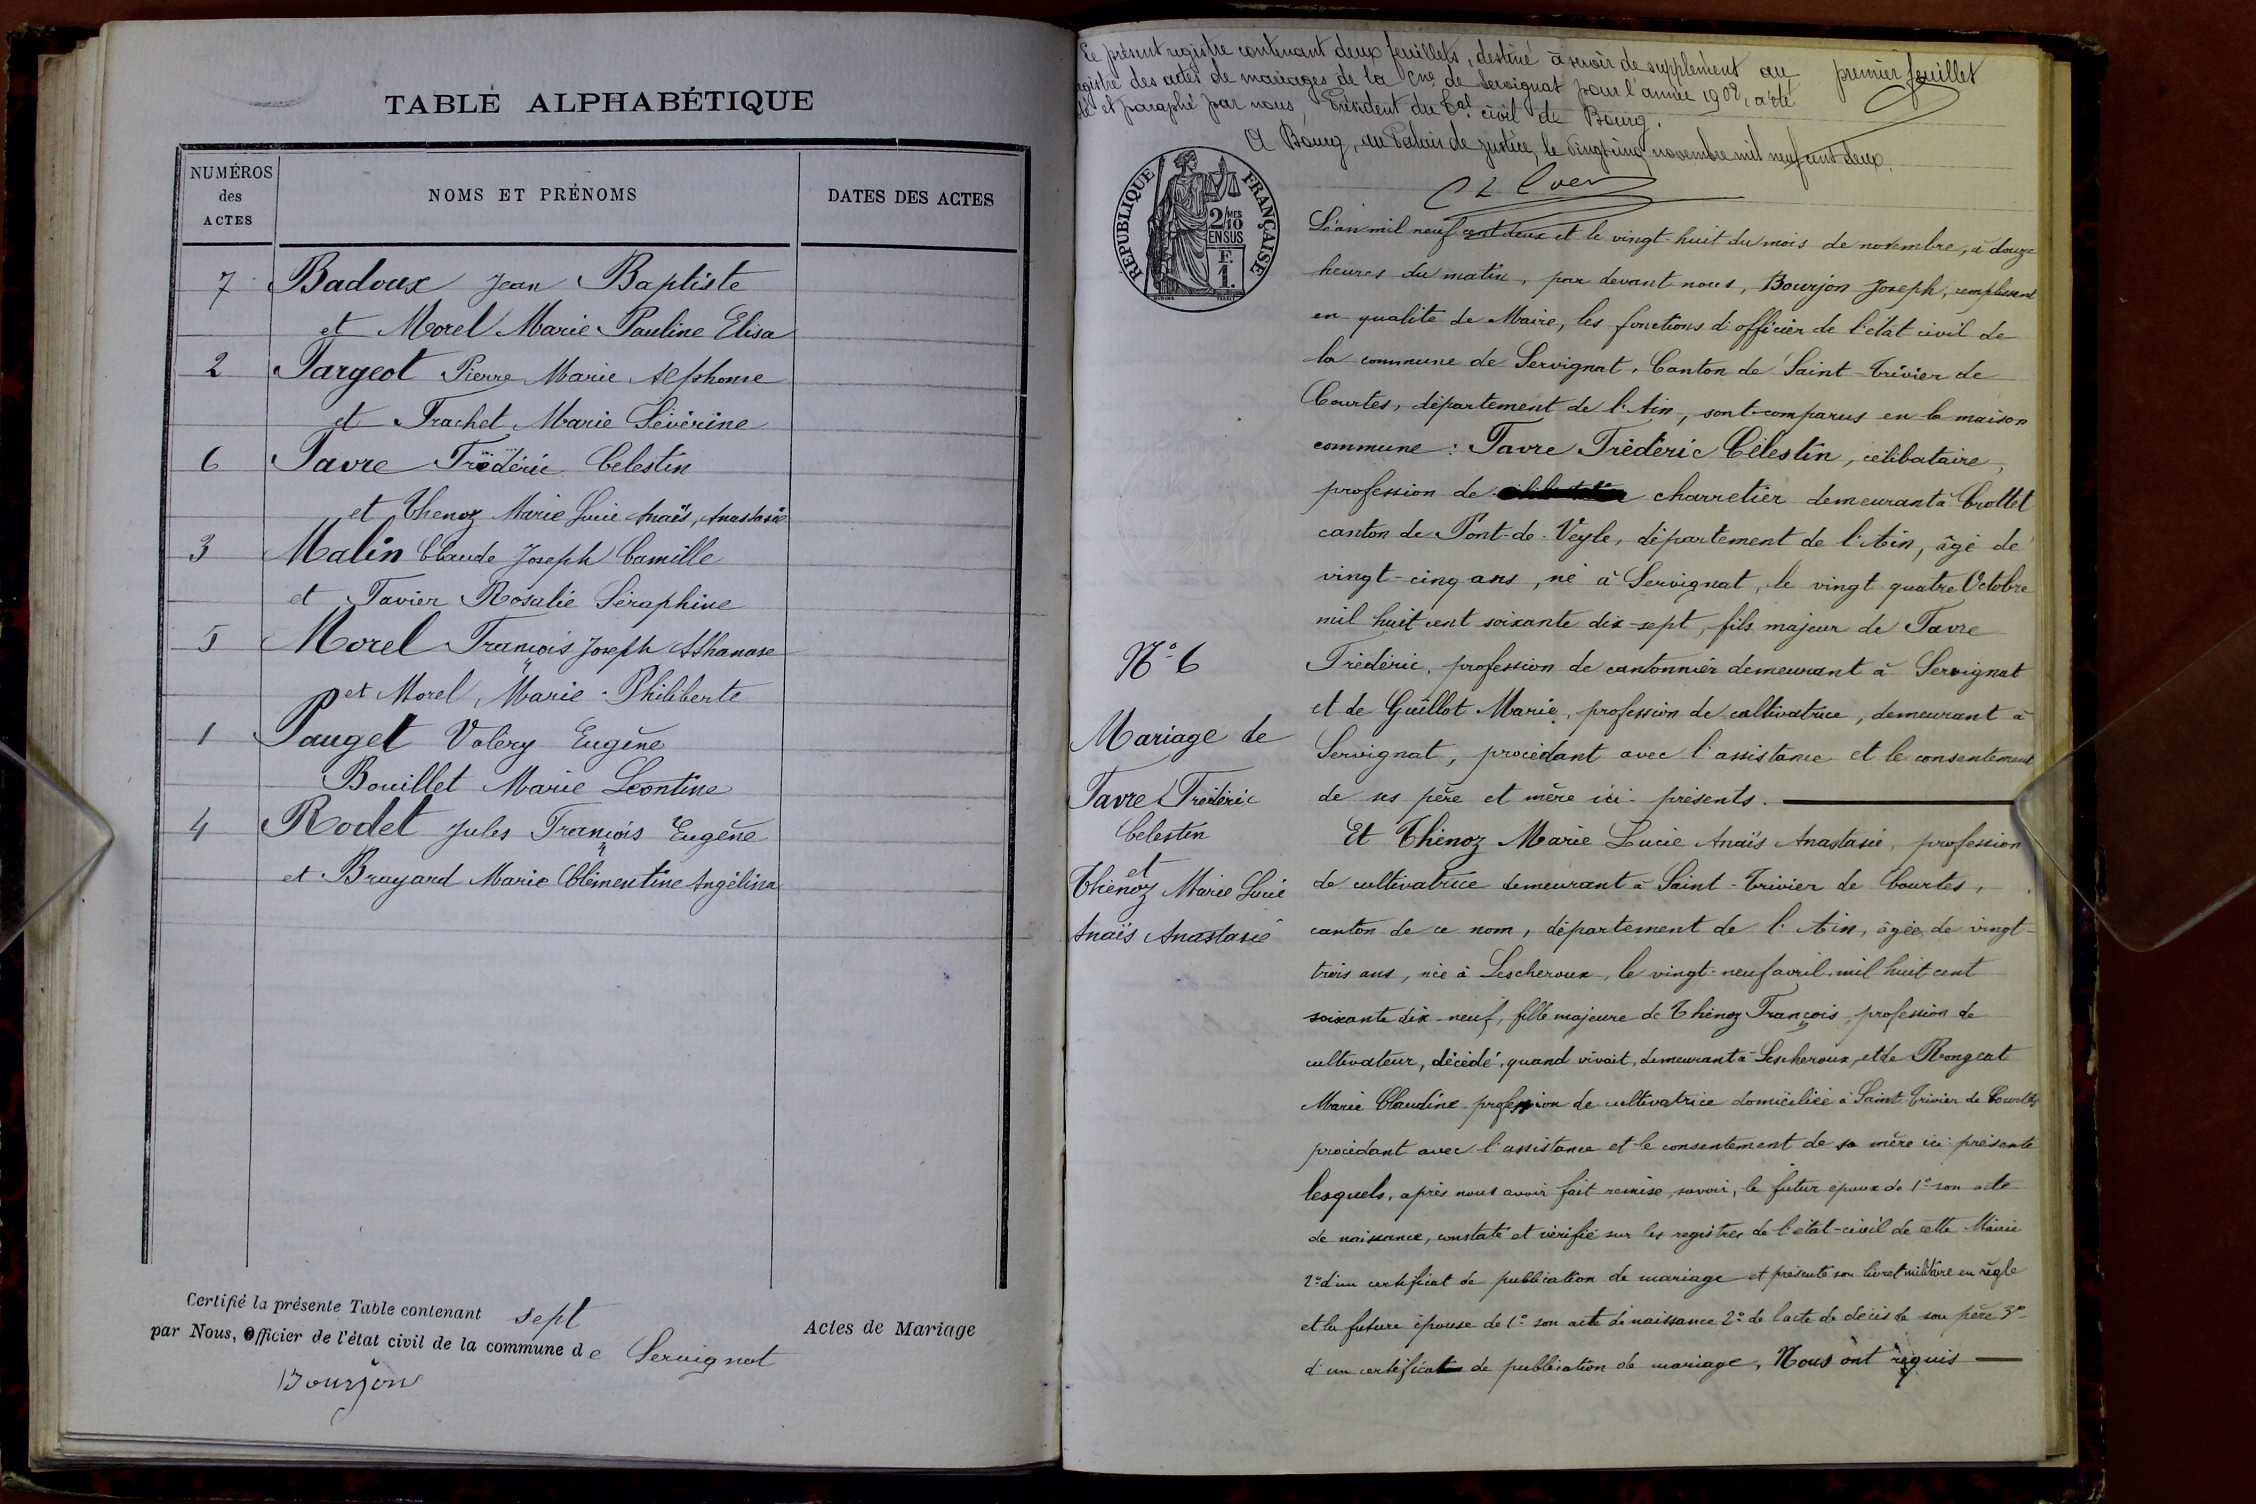 TABLE ALPHABÉTIQUE
NUMÉROS
des
ACTES
NOMS ET PRÉNOMS
DATES DES ACTES
7 Badoux Jean Baptiste
et Morel Marie Pauline Elisa
2 Fargeot Pierre Marie Alphonse
et Frachet Marie Séverine
6 Favre Frédéric Celestin
et Thenoz Marie Lucie Anaïs, Anastasie
3 Malin Claude Joseph Camille
et Favier Rosalie Séraphine
5 Morel François Joseph Athanase
et Morel Marie Philiberte
1 Pauget Valéry Eugène
Bouillet Marie Leontine
4 Rodet Jules François Eugène
et Brayard Marie Clémentine Angélina
Certifié la présente Table contenant sept
Actes de Mariage
par Nous, Officier de l'état civil de la commune de Servignat
Bourjon
Le présent registre contenant deux feuillets, destiné à servir de supplément au
premier feuillet
registre des actes de mariages de la Cne de Servignat pour l'année 1902, a été
et paraphé par nous, Président du Cal civil de Bourg.
A Bourg, au Palais de justice, le vingt-cinq novembre mil neuf cent deux.
RÉPUBLIQUE FRANÇAISE
2/10
MES
EN SUS
F.
1.
L'an mil neuf cent deux et le vingt-huit du mois de novembre, à douze
heures du matin, par devant nous, Bourjon Joseph, remplissant
en qualité de Maire, les fonctions d'officier de l'état civil de
la commune de Servignat, Canton de Saint-Trivier de
Courtes, département de l'Ain, sont comparus en la maison
commune : Favre Frédéric Célestin, célibataire,
profession de charretier demeurant à Crottet
canton de Pont-de-Veyle, département de l'Ain, âgé de
vingt-cinq ans, né à Servignat, le vingt quatre Octobre
mil huit cent soixante dix-sept, fils majeur de Favre
Frédéric, profession de cantonnier demeurant à Servignat
et de Guillot Marie, profession de cultivatrice, demeurant à
Servignat, procédant avec l'assistance et le consentement
de ses père et mère ici présents.
Et Thénoz Marie Lucie Anaïs Anastasie, profession
de cultivatrice demeurant à Saint-Trivier de Courtes,
canton de ce nom, département de l'Ain, âgée de vingt-
trois ans, née à Lescheroux, le vingt-neuf avril mil huit cent
soixante dix-neuf, fille majeure de Thénoz François, profession de
cultivateur, décédé, quand vivait, demeurant à Lescheroux, et de Rongeat
Marie Claudine profession de cultivatrice domiciliée à Saint-Trivier de Courtes
procédant avec l'assistance et le consentement de sa mère ici présente
lesquels, après nous avoir fait remise, savoir, le futur époux de 1° son acte
de naissance, constaté et vérifié sur les registres de l'état-civil de cette Mairie
2° d'un certificat de publication de mariage et présenté son livret militaire en règle
et la future épouse de 1° son acte de naissance 2° de l'acte de décès de son père 3°
d'un certificat de publication de mariage, Nous ont requis
N° 6
Mariage de
Favre Frédéric
Celestin
et
Thénoz Marie Lucie
Anaïs Anastasie